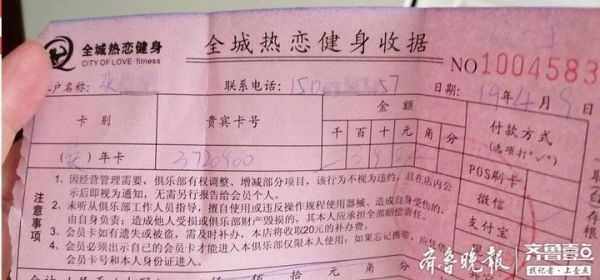 全城热恋健身
CITY OF LOVE fitness
全城热恋健身收据
NO 1004583
户名称:
联系电话: 150 57
日期: 19年4月9日
卡别
贵宾卡号
金额
千百十元角分
付款方式
(选项打"√")
年卡
3720900
POS刷卡
微信
支付宝
注意事项
1、因经营管理需要,俱乐部有权调整、增减部分项目,该行为不视为违约,且在店内公
示后即视为通知,无需另行报告给会员个人。
2、未听从俱乐部工作人员指导,擅自使用或违反操作规程使用器械、造成自身受伤的,
由自身负责;造成他人受损或俱乐部财产毁损的,其本人应承担全部赔偿责任。
3、会员卡如有遗失或被盗,需及时补办,本店将收取20元的补办费。
4、会员必须出示自己的会员卡才能进入本俱乐部仅限本人使用;如果忘记携带,应凭借
会员卡号和本人身份证进入。
现
齐鲁晚报
齐鲁壹点
找记者·上壹点